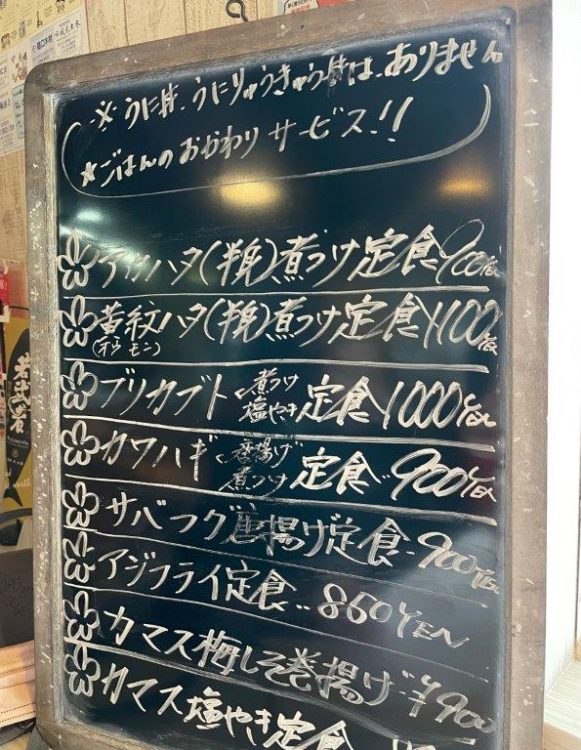 ※うに丼、うにりゅうきゅう丼は、ありません
★ごはんのおかわりサービス!!
アカハタ(半身)煮つけ定食900YEN
黄紋ハタ(半身)煮つけ定食1100YEN
(オウモン)
ブリカブト 煮つけ 定食1000YEN
塩やき
カワハギ 唐揚げ 定食‥900YEN
煮つけ
サバフグ唐揚げ定食‥900YEN
アジフライ定食‥860YEN
カマス梅しそ巻揚げ‥¥900
カマス塩やき定食